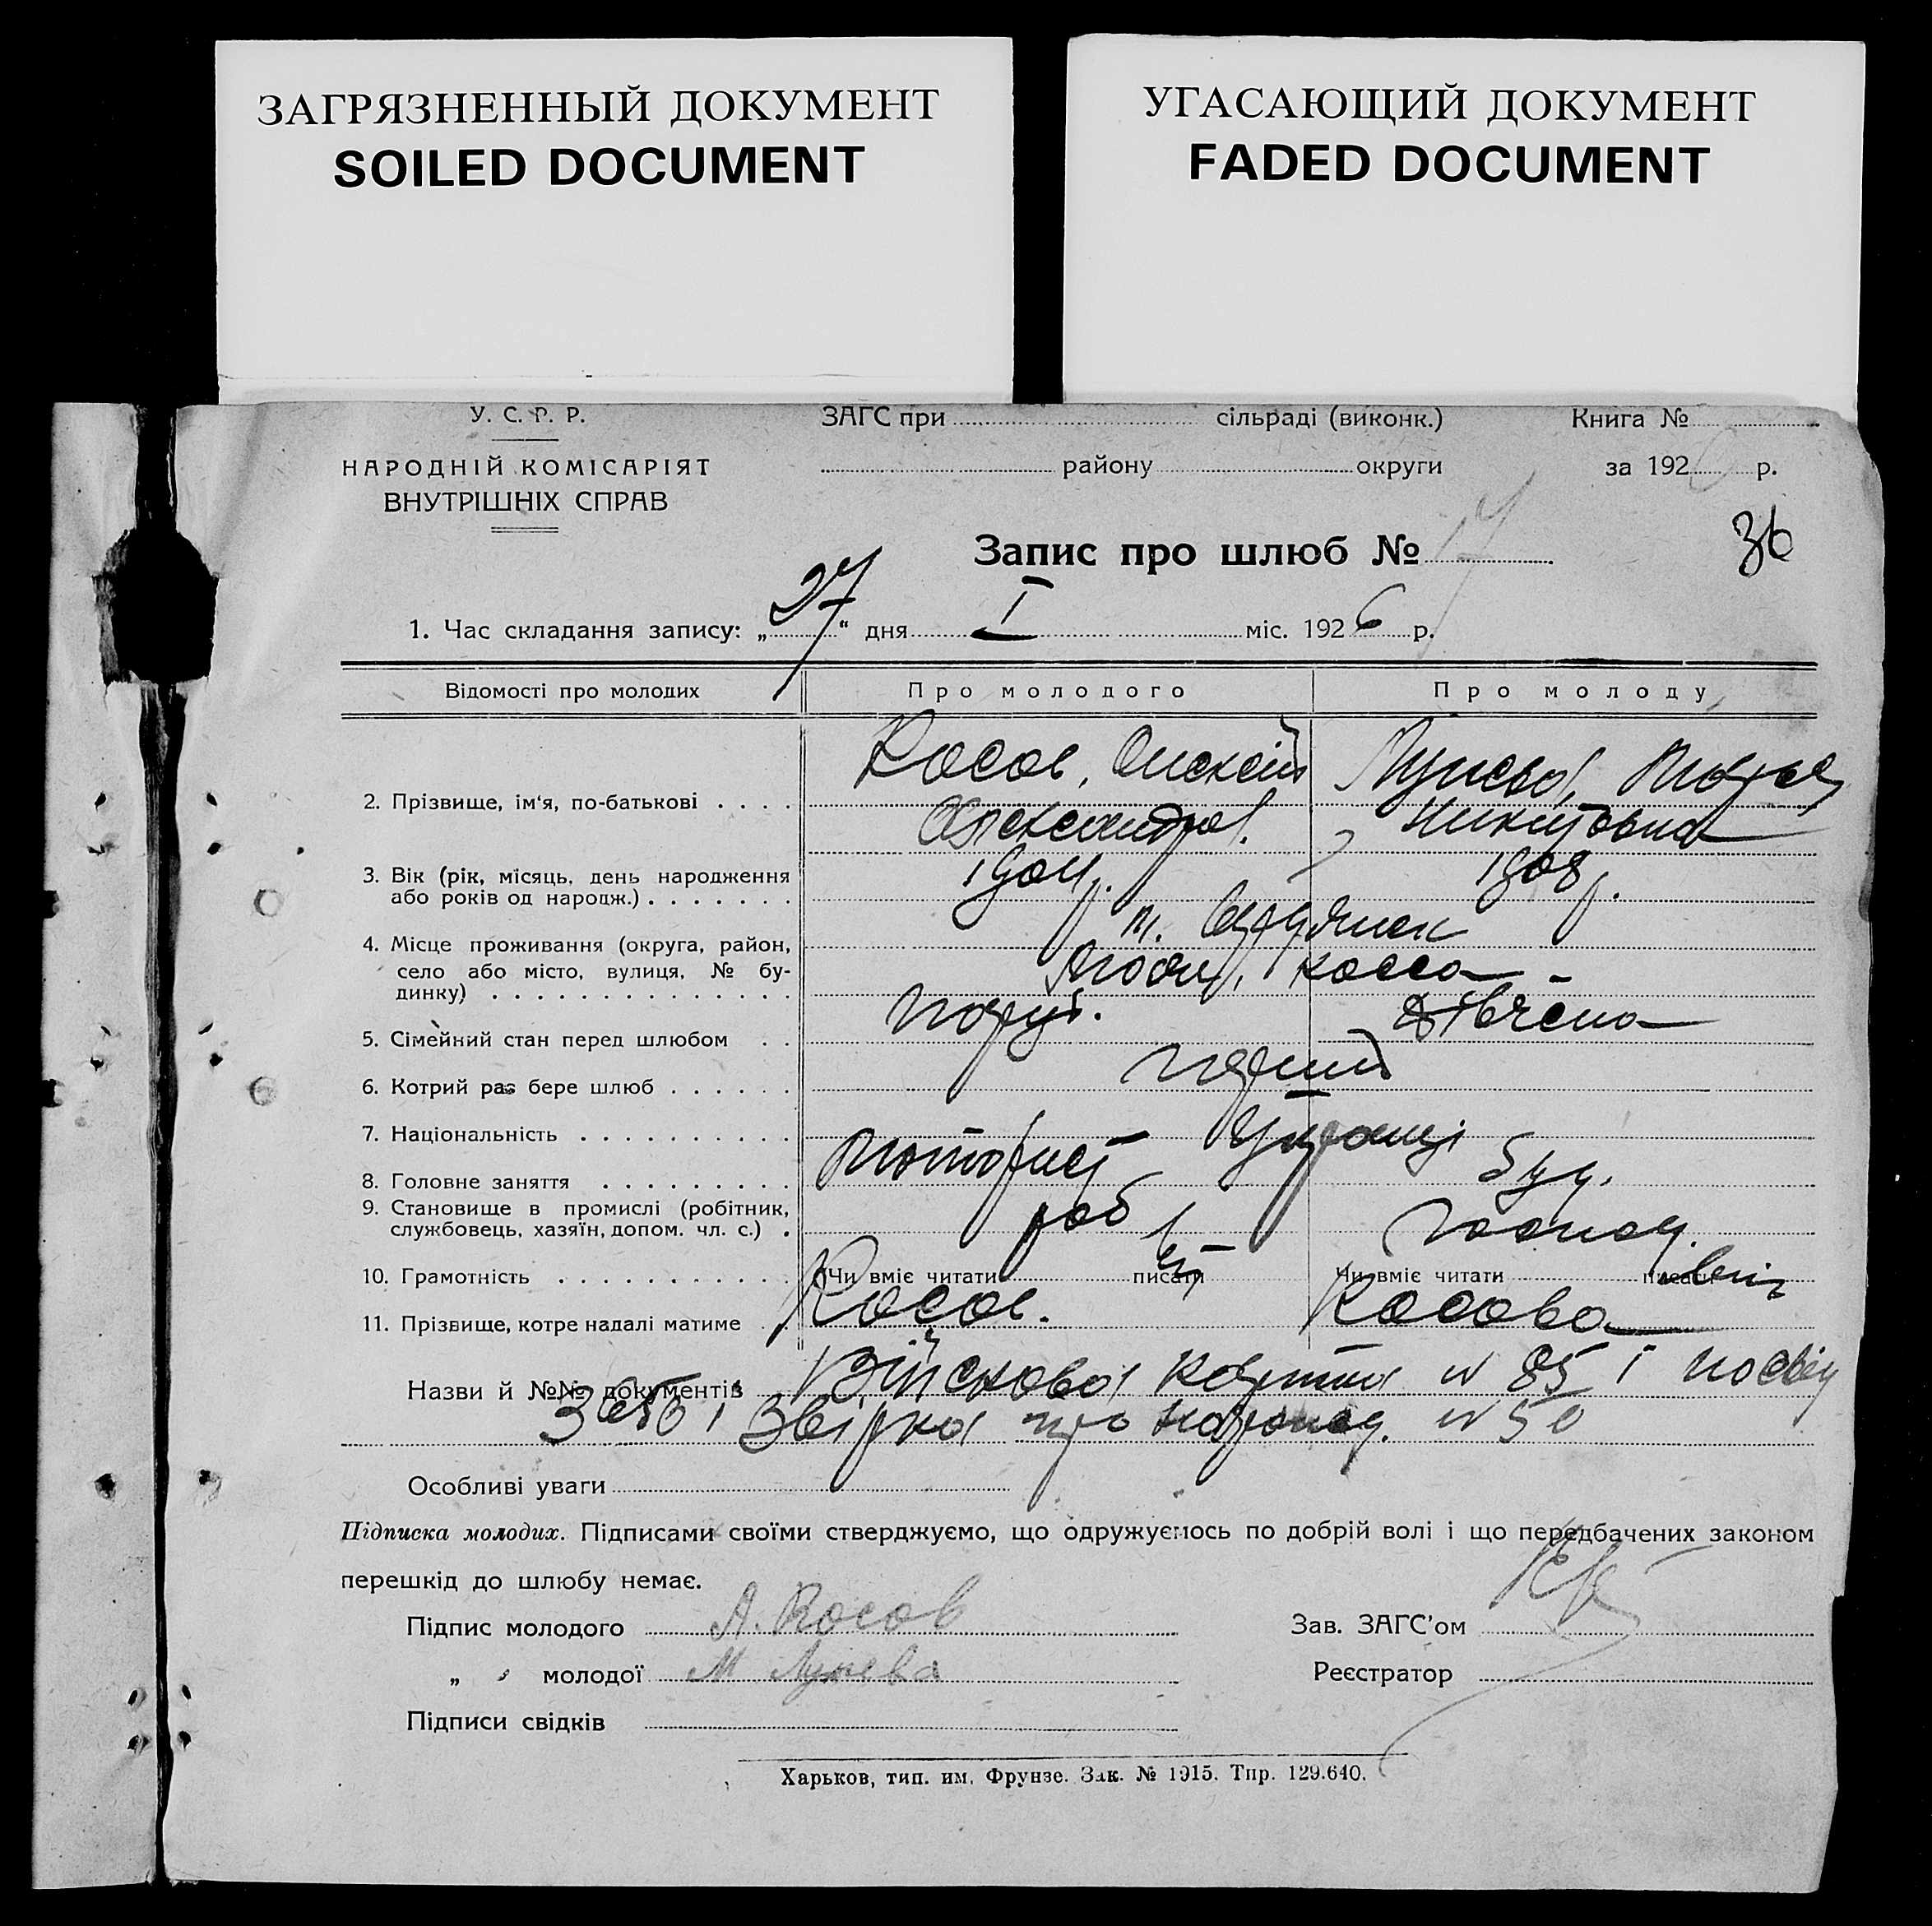 ЗАГРЯЗНЕННЫЙ ДОКУМЕНТ
SOILED DOCUMENT
УГАСАЮЩИЙ ДОКУМЕНТ
FADED DOCUMENT
У. С. Р. Р.
НАРОДНІЙ КОМІСАРІЯТ
ВНУТРІШНІХ СПРАВ
ЗАГС при сільраді (виконк.) Книга №
району округи за 1926 р.
Запис про шлюб № 17
36
1. Час складання запису: „27" дня I міс. 1926 р.
Відомості про молодих Про молодого Про молоду
2. Прізвище, ім'я, по-батькові . . . . Косов, Олексій Лунева,
Александров. Никитовна
3. Вік (рік, місяць, день народження
або років од народж.) . . . . . . . 1904 р. 1908 р.
4. Місце проживання (округа, район,
село або місто, вулиця, № бу-
динку) . . . . . . . . . . . . . . . м. коса
5. Сімейний стан перед шлюбом . . Паруб. дівчена
6. Котрий раз бере шлюб . . . . . . перший
7. Національність . . . . . . . . . . Українці
8. Головне заняття . . . . . . . . . Моторист
9. Становище в промислі (робітник,
службовець, хазяїн, допом. чл. с.) . роб
10. Грамотність . . . . . . . . . . . Чи вміє читати писати Чи вміє читати писати
11. Прізвище, котре надалі матиме . . Косов. Косова
Назви й №№ документів Війскова картка N 85 і посвід
365, Звірка про народ. N 50
Особливі уваги
Підписка молодих. Підписами своїми стверджуємо, що одружуємось по добрій волі і що передбачених законом
перешкід до шлюбу немає.
Підпис молодого А. Косов Зав. ЗАГС'ом
„ „ молодої М Лунева Реєстратор
Підписи свідків
Харьков, тип. им. Фрунзе. Зак. № 1915. Тир. 129.640.